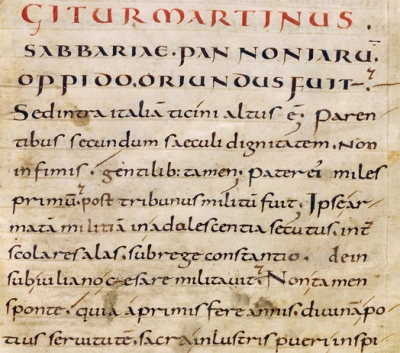 GITUR MARTINUS.
SABBARIAE · PANNONIARŪ
OPPIDO, ORIUNDUS FUIT.
Sed intra italiā ticini altus ē. Paren
tibus secundum saeculi dignitatem. Non
infimis. gentilib: tamen. Pater ei miles
primū. post tribunus militū fuit. Ipse ar
matā militiā in adolescentia secutus. int
scolares alas. sub rege constantio. dein
sub iuliano cęsare militavit. Non tamen
sponte. quia a primis fere annis. divinā po
tius servitutē. sacra inlustris pueri inspi